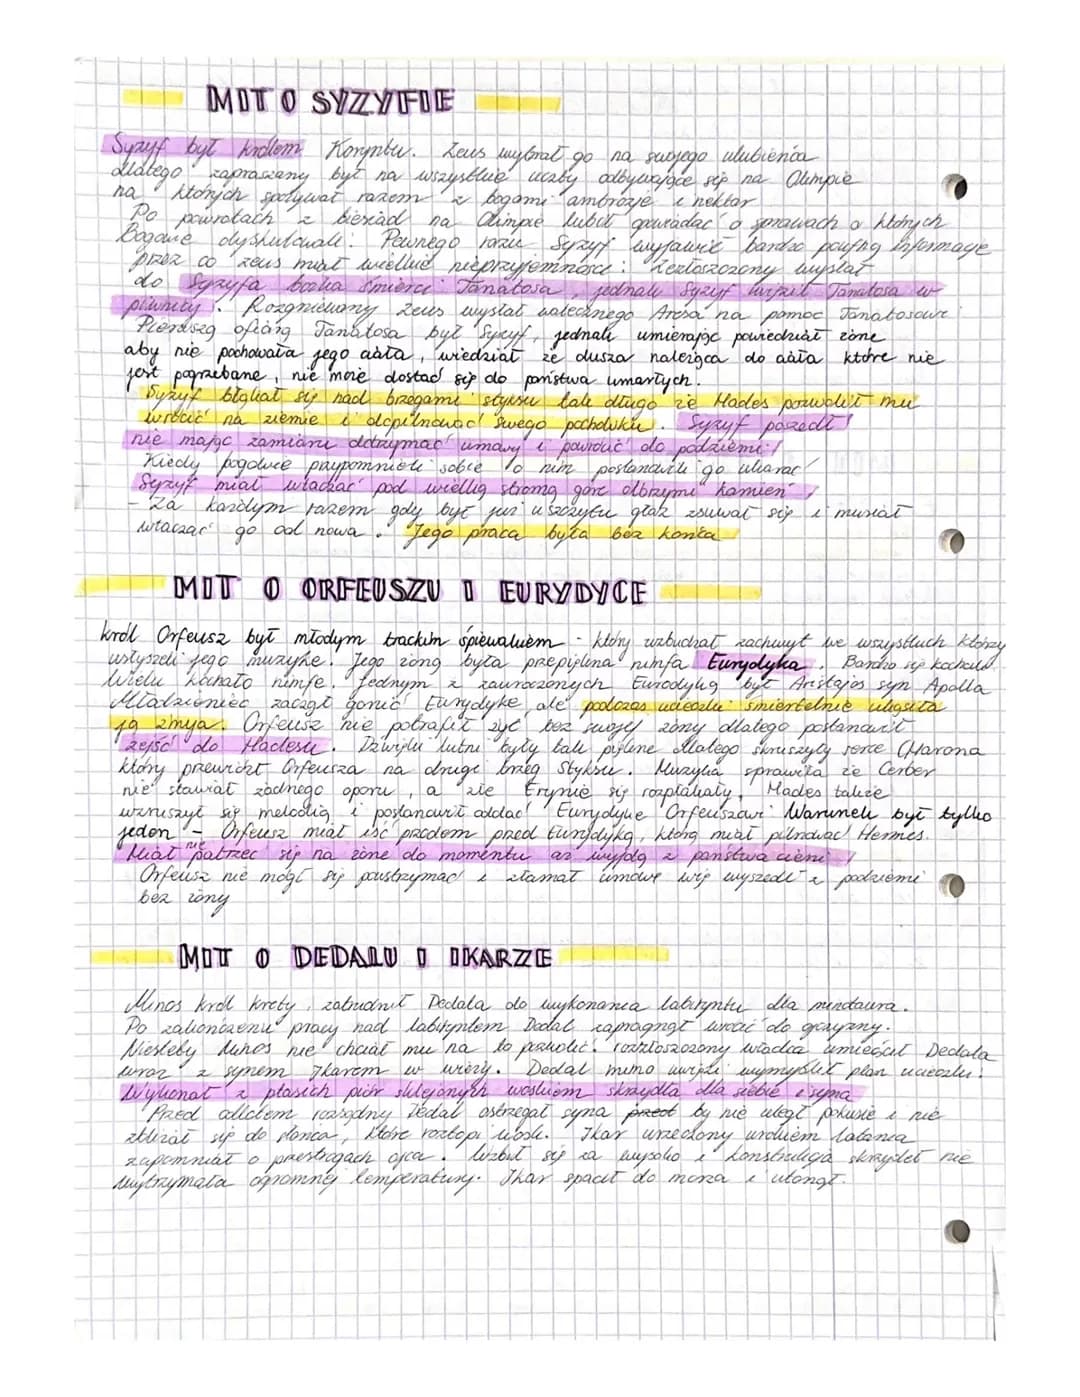 MIT O SYZYFIE
Syzyf był królem Koryntu. Zeus wybrał go na swojego ulubieńca
dlatego zapraszany był na wszystkie uczty odbywające się na Olimpie
na których spożywał razem z bogami ambrozje i nektar
Po powrotach z biesiad na Olimpie lubił opowiadać o sprawach o których
Bogowie dyskutowali. Pewnego razu Syzyf wyjawił bardzo poufną informacje
przez co zeus miał wielkie nieprzyjemności. Zezłoszczony wysłał
do Syzyfa bożka śmierci Tanatosa, jednak Syzyf uwięził Tanatosa w
piwnicy. Rozgniewany Zeus wysłał walecznego Aresa na pomoc Tanatosowi
Pierwszą ofiarą Tanatosa był Syzyf, jednak umierając powiedział żonie
aby nie pochowała jego ciała, wiedział że dusza należąca do ciała które nie
jest pogrzebane, nie może dostać się do państwa umarłych.
Syzyf błąkał się nad brzegami styksu tak długo że Hades pozwolił mu
wrócić na ziemie i dopilnować swego pochówku. Syzyf poszedł
nie mając zamiaru dotrzymać umowy i powrócić do podziemi
Kiedy bogowie przypomnieli sobie o nim postanowili go ukarać
Syzyf miał wtaczać pod wielką stromą góre olbrzymi kamień
- Za każdym razem gdy był już u szczytu głaz zsuwał się i musiał
wtaczać go od nowa. Jego praca była bez końca
MIT O ORFEUSZU I EURYDYCE
król Orfeusz był młodym trackim śpiewakiem - który wzbudzał zachwyt we wszystkich którzy
usłyszeli jego muzyke. Jego żoną była przepiękna nimfa Eurydyka. Bardzo się kochali
Wielu kochało nimfe. Jednym z zauroczonych Eurodyką był Aristajos syn Apolla
Młodzieniec zaczął gonić Eurydyke, ale podczas ucieczki śmiertelnie ukąsiła
ją żmija. Orfeusz nie potrafił żyć bez swojej żony dlatego postanowił
zejść do Hadesu. Dźwięki lutni były tak piękne dlatego skruszyły serce Charona
który przewiózł Orfeusza na drugi brzeg Styksu. Muzyka sprawiła że Cerber
nie stawiał żadnego oporu, a złe Erynie się rozpłakały, Hades także
wzruszył się melodią i postanowił oddać Eurydyke Orfeuszowi. Warunek był tylko
jeden - Orfeusz miał iść przodem przed Eurydyką, którą miał pilnować Hermes.
Miał nie patrzeć się na żone do momentu aż wyjdą z państwa cieni
Orfeusz nie mógł się powstrzymać i złamał umowę więc wyszedł z podziemi
bez żony
MIT O DEDALU I IKARZE
Minos król krety, zatrudnił Dedala do wykonania labiryntu dla minotaura.
Po zakończeniu pracy nad labiryntem Dedal zapragnął wrócić do ojczyzny.
Niestety Minos nie chciał mu na to pozwolić. rozzłoszczony władca umieścił Dedala
wraz z synem Ikarem w wieży. Dedal mimo uwięzi wymyślił plan ucieczki.
Wykonał z ptasich piór sklejonych woskiem skrzydła dla siebie i syna
Przed odlotem rozsądny Dedal ostrzegał syna przed by nie uległ pokusie i nie
zbliżał się do słońca, które roztopi wosk. Ikar urzeczony urokiem latania
zapomniał o przestrogach ojca. Wzbił się za wysoko i konstrukcja skrzydeł nie
wytrzymała ogromnej temperatury. Ikar spadł do morza i utonął.